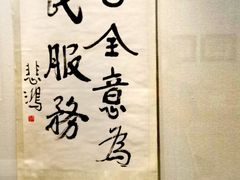 全意為
民服務
悲鴻